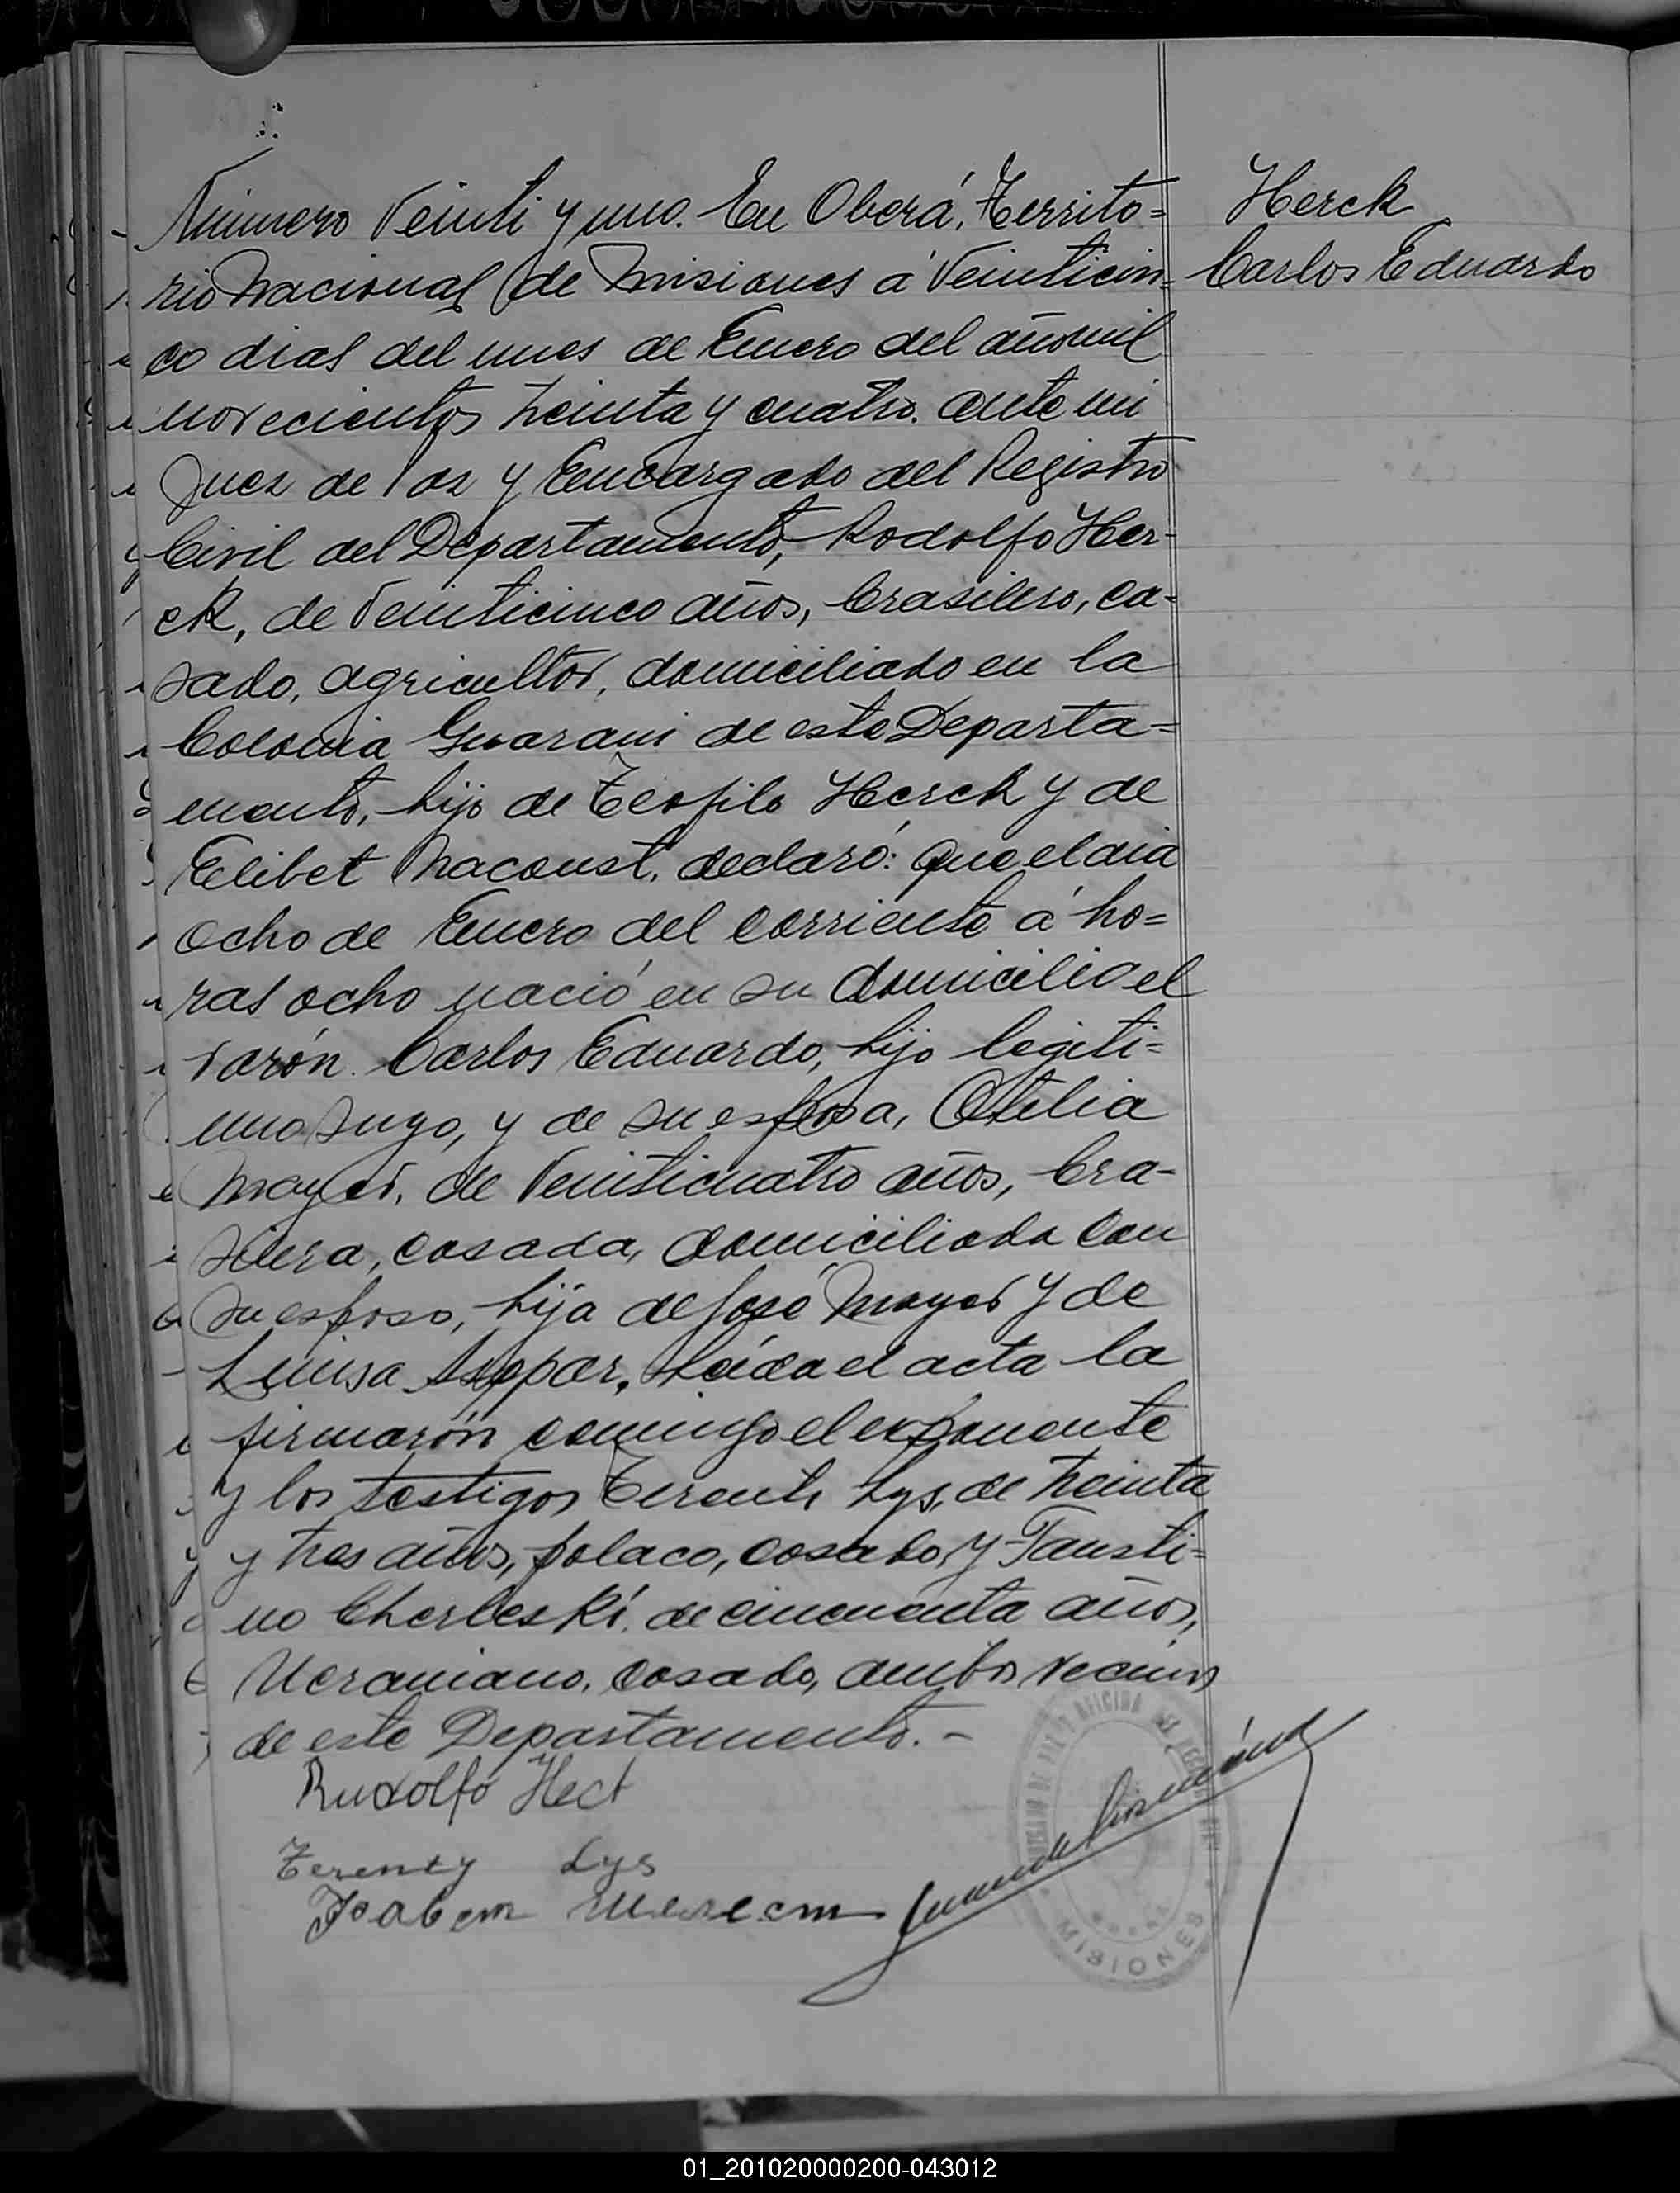 Número Veinti y uno. En Oberá, Territo=
rio Nacional de Misiones á Veinticin=
co dias del mes de Enero del año mil
novecientos treinta y cuatro. ante mi
Juez de Paz y Encargado del Registro
Civil del Departamento, Rodolfo Her-
ck, de Veinticinco años, brasilero, ca-
sado, agricultor, domiciliado en la
Colonia Guarani de este Departa=
mento, hijo de Teofilo Herck y de
Elibet declaró: que el dia
ocho de Enero del corriente á ho=
ras ocho nació en su domicilio el
varón. Carlos Eduardo, hijo legiti=
mo suyo, y de su esposa, Otilia
Mayer, de Veinticuatro años, bra-
silera, casada, domiciliada con
su esposo, hija de José Mayer y de
Luisa Leida el acta la
firmarón conmigo el exponente
y los testigos Terenti Lys, de treinta
y tres años, polaco, casado, y Fausti=
no Cherleski, de cincuenta años,
Ucraniano, casado, ambos vecinos
de este Departamento. -
Rudolfo Hect
Terenty Lys
Herck
Carlos Eduardo
MISIONES
01_201020000200-043012